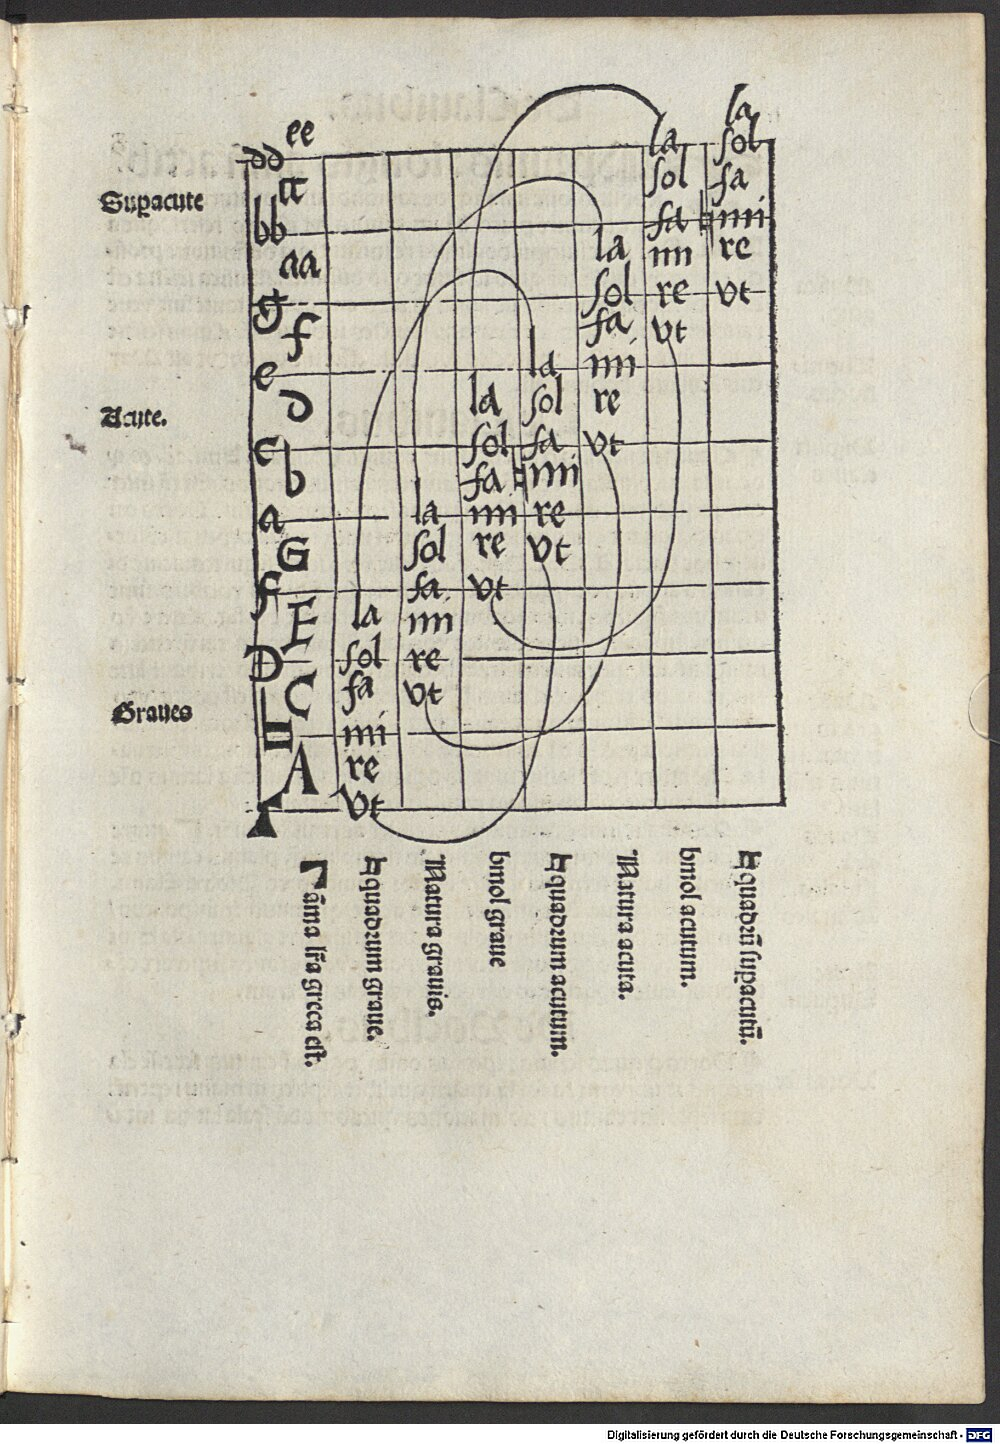 ee la
dd la sol
cc sol fa
Supacute
bb fa ♮ mi
aa la mi re
g sol re vt
f fa vt
e la mi
d la sol re
Acute.
c sol fa vt
b fa ♮ mi
a la mi re
G sol re vt
F fa vt
E la mi
D sol re
C fa vt
Graues
♮ mi
A re
Γ vt
Γ āma lr̄a greca est.
♮quadrum graue.
Natura grauis.
bmol graue
♮quadrum acutum.
Natura acuta.
bmol acutum.
♮quadrū supacutū.
Digitalisierung gefördert durch die Deutsche Forschungsgemeinschaft - DFG